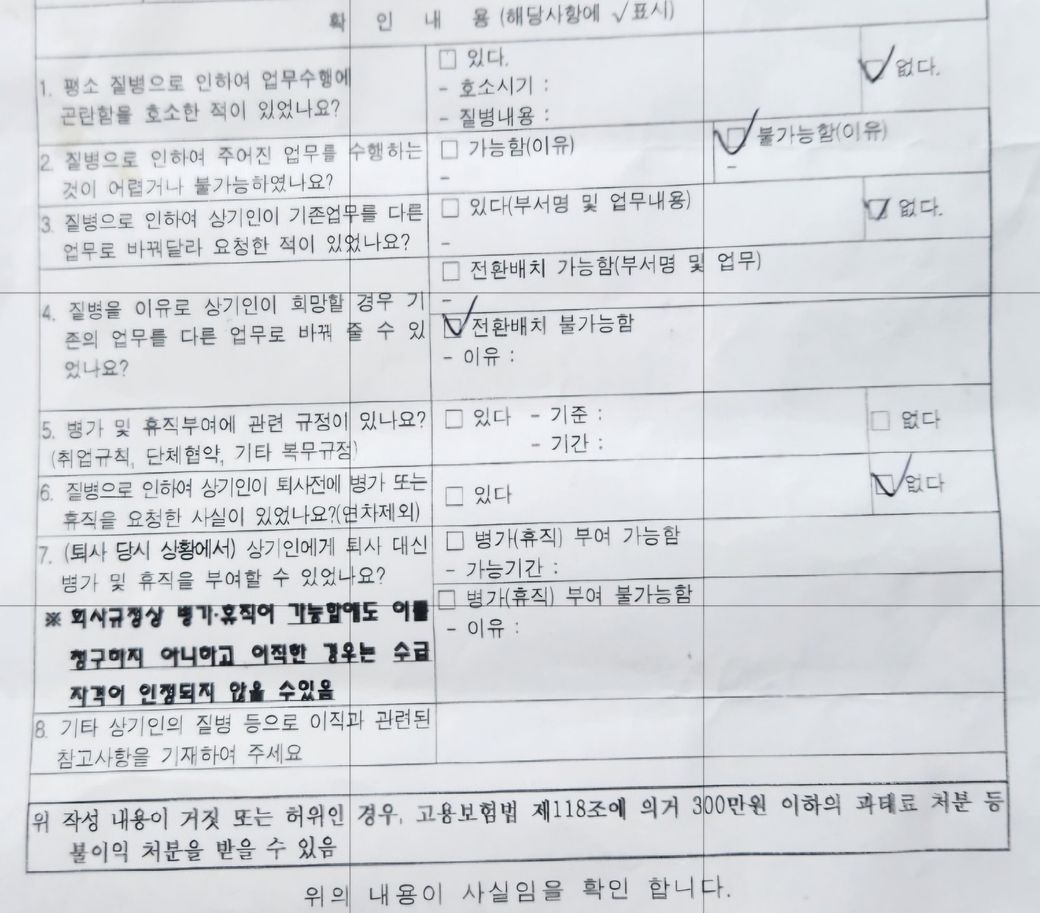 확 인 내 용 (해당사항에 √표시)
1. 평소 질병으로 인하여 업무수행에
곤란함을 호소한 적이 있었나요?
□ 있다.
- 호소시기 :
- 질병내용 :
☑ 없다.
2. 질병으로 인하여 주어진 업무를 수행하는
것이 어렵거나 불가능하였나요?
□ 가능함(이유)
-
☑ 불가능함(이유)
-
3. 질병으로 인하여 상기인이 기존업무를 다른
업무로 바꿔달라 요청한 적이 있었나요?
□ 있다(부서명 및 업무내용)
-
☑ 없다.
4. 질병을 이유로 상기인이 희망할 경우 기
존의 업무를 다른 업무로 바꿔 줄 수 있
었나요?
□ 전환배치 가능함(부서명 및 업무)
-
☑ 전환배치 불가능함
- 이유 :
5. 병가 및 휴직부여에 관련 규정이 있나요?
(취업규칙, 단체협약, 기타 복무규정)
□ 있다 - 기준 :
- 기간 :
□ 없다
6. 질병으로 인하여 상기인이 퇴사전에 병가 또는
휴직을 요청한 사실이 있었나요?(연차제외)
□ 있다
☑ 없다
7. (퇴사 당시 상황에서) 상기인에게 퇴사 대신
병가 및 휴직을 부여할 수 있었나요?
※ 회사규정상 병가·휴직이 가능함에도 이를
청구하지 아니하고 이직한 경우는 수급
자격이 인정되지 않을 수있음
□ 병가(휴직) 부여 가능함
- 가능기간 :
□ 병가(휴직) 부여 불가능함
- 이유 :
8. 기타 상기인의 질병 등으로 이직과 관련된
참고사항을 기재하여 주세요
위 작성 내용이 거짓 또는 허위인 경우, 고용보험법 제118조에 의거 300만원 이하의 과태료 처분 등
불이익 처분을 받을 수 있음
위의 내용이 사실임을 확인 합니다.